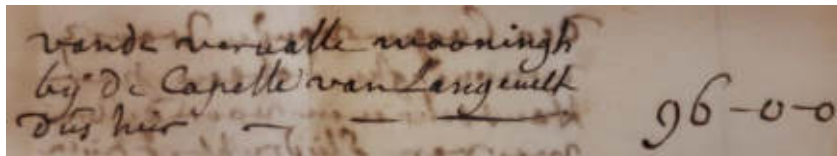 vande vervalle wooningh
by de Capelle van Langevelt
dus hier — — — 96-0-0